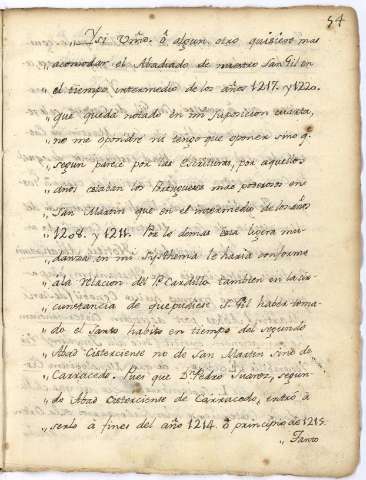 54
„ Ysi Vmo. ô algun otro quisiere mas
„ acomodar el Abadiado de nuestro San Gil en
„ el tiempo intermedio de los años 1217. y 1220.
„ que queda notado en mi suposicion cuarta,
„ no me opondre ni tengo que oponer sino q.
„ segun parece por las Escrituras, por aquellos
„ años estaban los Benizneses mas poderosos en
„ San Martin que en el intermedio de los años
„ 1208. y 1211. Por lo demas esta ligera mu-
„ danza en mi Systhema le haria conforme
„ âla relacion del P. Cardillo tambien en la cir-
„ cunstancia de que pudiese S. Gil haber toma-
„ do el santo habito en tiempo del segundo
„ Abad Cisterciense no de San Martin sino de
„ Carracedo. Pues que D. Pedro Juarez, segun-
„ do Abad Cisterciense de Carracedo, entró â
„ serlo â fines del año 1214. ô principio de 1215.
„ Tanto